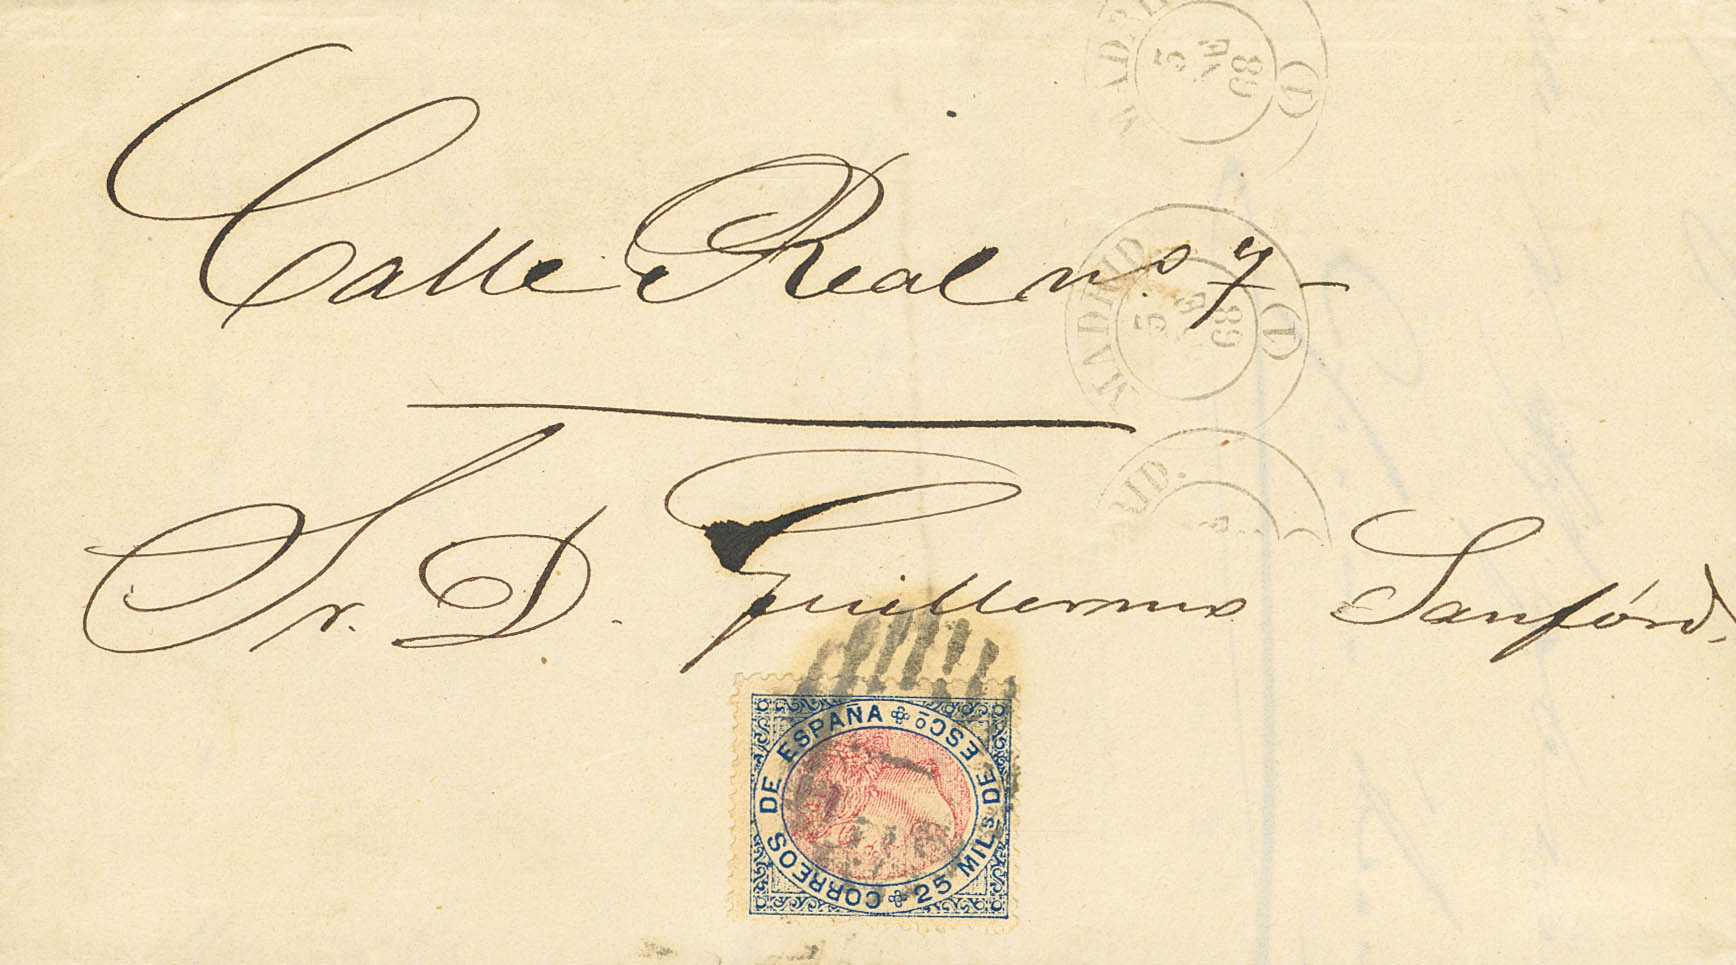 Calle Real n.º 7-
Sr. D. Guillermo Sanfórd.
MADRID.
5
89
(1)
MADRID.
5
89
(1)
RID.
CORREOS DE ESPAÑA
25 MILS DE ESCO